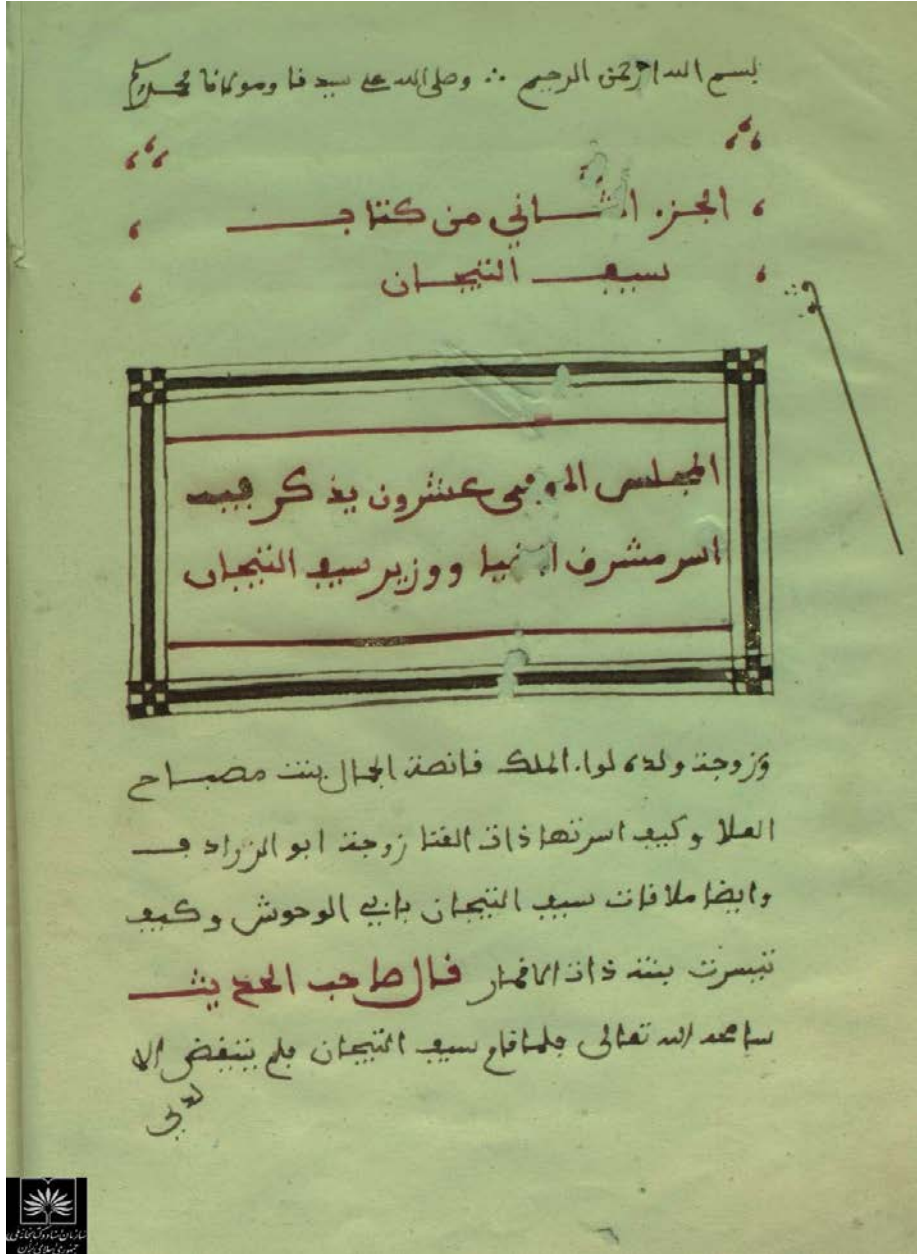 بسم الله الرحمن الرحيم ∴ وصلى الله على سيدنا ومولانا محمد
الجزء الثاني من كتاب
سيف التيجان
المجلس عشرون يذكر فيه
اسر مشرف الدنيا ووزير سيف التيجان
وزوجة ولده لواء الملك قانصة الجمال بنت مصباح
العلا وكيف اسرتها ذات الفتا زوجة ابو الزوادف
وايضا ملاقات سيف التيجان بابي الوحوش وكيف
تيسرت بنته ذات الاقمار قال صاحب الحديث
سامحه الله تعالى فلما قام سيف التيجان فلم ينتفض الا
سازمان اسناد و کتابخانه ملی
جمهوری اسلامی ایران